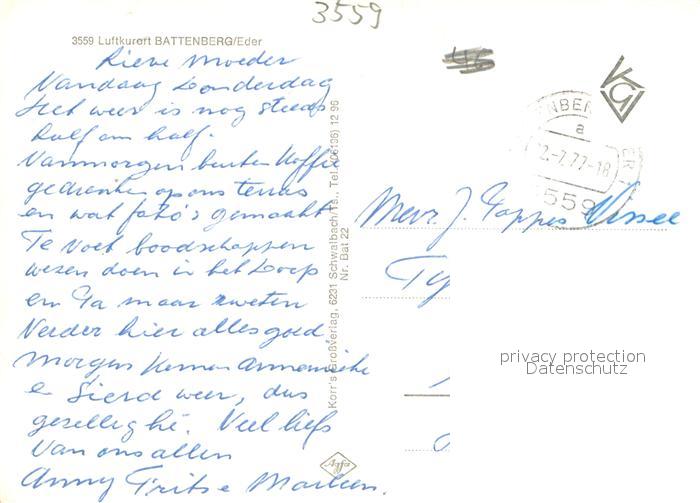 3559
3559 Luftkurort BATTENBERG/Eder
Lieve Moeder
Vandaag Donderdag
Het weer is nog steeds
half om half.
Vanmorgen buiten Koffie
gedronken op ons terras
en wat foto's gemaakt
Te voet boodschappen
wezen doen in het Dorp
en Ja maar zweten
Verder hier alles goed
morgen komen Annemieke
e Sierd weer, dus
gezellig hé. Veel liefs
van ons allen
Anny Frits e Marleen.
Korr's Großverlag, 6231 Schwalbach/Ts., Tel. (06196) 12 96
Nr. Bat 22
Agfa
KGV
NBER
a
2.-7.77-18
559
Mevr. J. Visser
privacy protection
Datenschutz